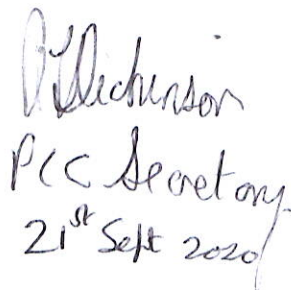 Dickinson
PCC Secretary
21st Sept 2020